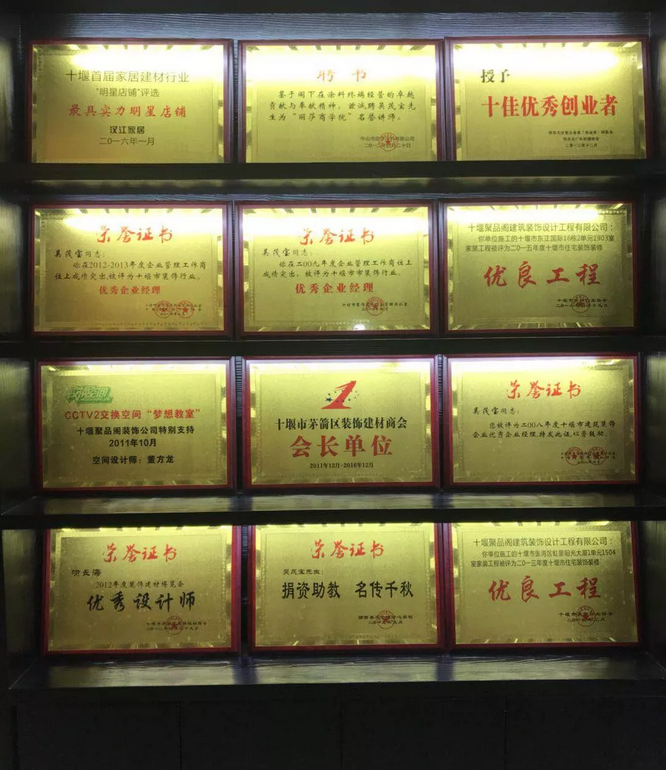 十堰首届家居建材行业
"明星店铺"评选
最具实力明星店铺
汉江家居
二〇一六年一月
聘书
鉴于阁下在涂料终端经营的卓越
贡献与奉献精神，兹诚聘吴茂宝先
生为"丽莎商学院"名誉讲师。
授予
十佳优秀创业者
荣誉证书
吴茂宝同志：
你在2012-2013年度企业管理工作岗
位上成绩突出，被评为十堰市装饰行业。
优秀企业经理
荣誉证书
吴茂宝同志：
你在二00九年度企业管理工作岗位上
成绩突出，被评为十堰市装饰行业。
优秀企业经理
十堰聚品阁建筑装饰设计工程有限公司：
你单位施工的十堰市东正国际16栋2单元1903室
家装工程被评为二〇一五年度十堰市住宅装饰装修
优良工程
CCTV2交换空间"梦想教室"
十堰聚品阁装饰公司特别支持
2011年10月
空间设计师：董方龙
1
十堰市茅箭区装饰建材商会
会长单位
2011年12月-2016年12月
荣誉证书
吴茂宝同志：
您被评为二00八年度十堰市建筑装饰
企业优秀企业经理,特发此证,以资鼓励。
荣誉证书
2012年度装饰建材博览会
优秀设计师
荣誉证书
吴茂宝先生：
捐资助教 名传千秋
十堰聚品阁建筑装饰设计工程有限公司：
家装工程被评为二〇一三年度十堰市住宅装饰装修
优良工程